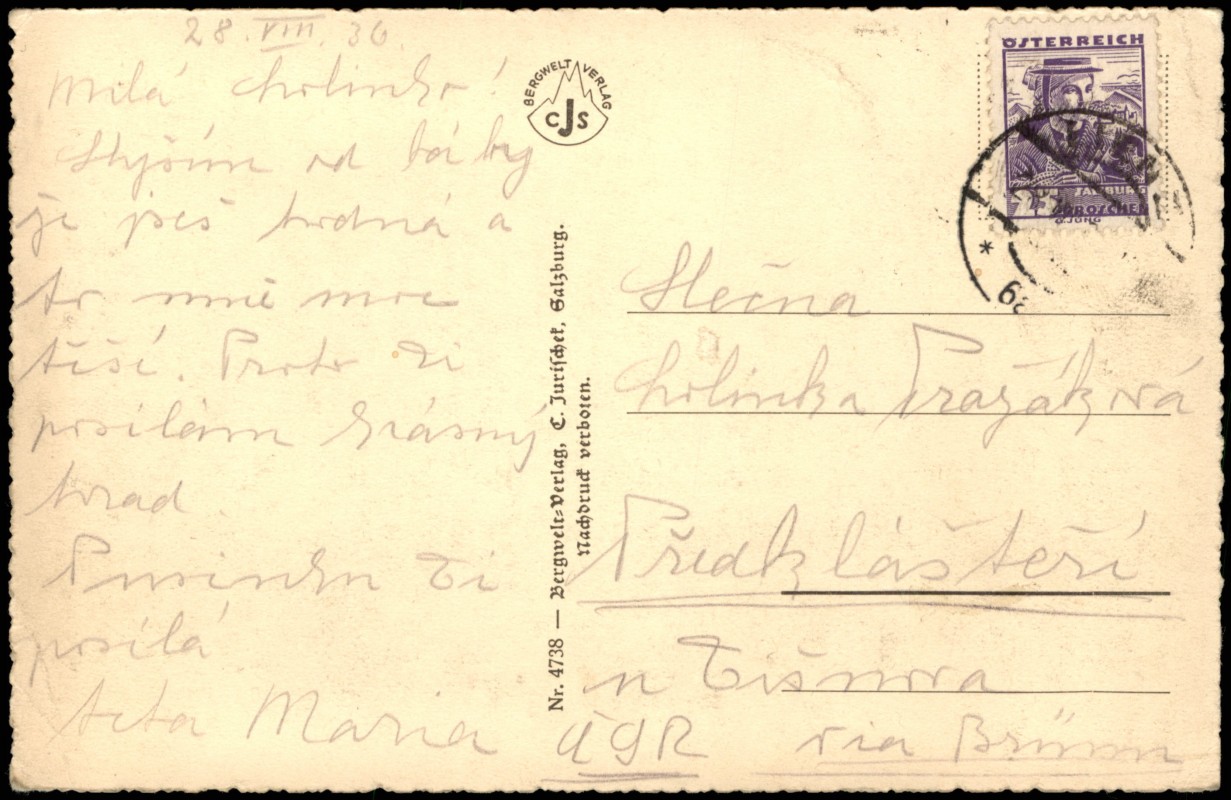 28. VIII. 36.
Milá Cholinko!
Slyším od báby
je jseš hodná a
to mně moc
těší. Proto Ti
posílám krásný
hrad.
Pusinku Ti
posílá
teta Maria
BERGWELT VERLAG
CJS
Nr. 4738 — Bergwelt-Verlag, C. Jurischek, Salzburg.
Nachdruck verboten.
ÖSTERREICH
SALZBURG
24 GROSCHEN
Slečna
Cholinka Pražáková
Předklášteří
u Tišnova
ČSR via Brünn